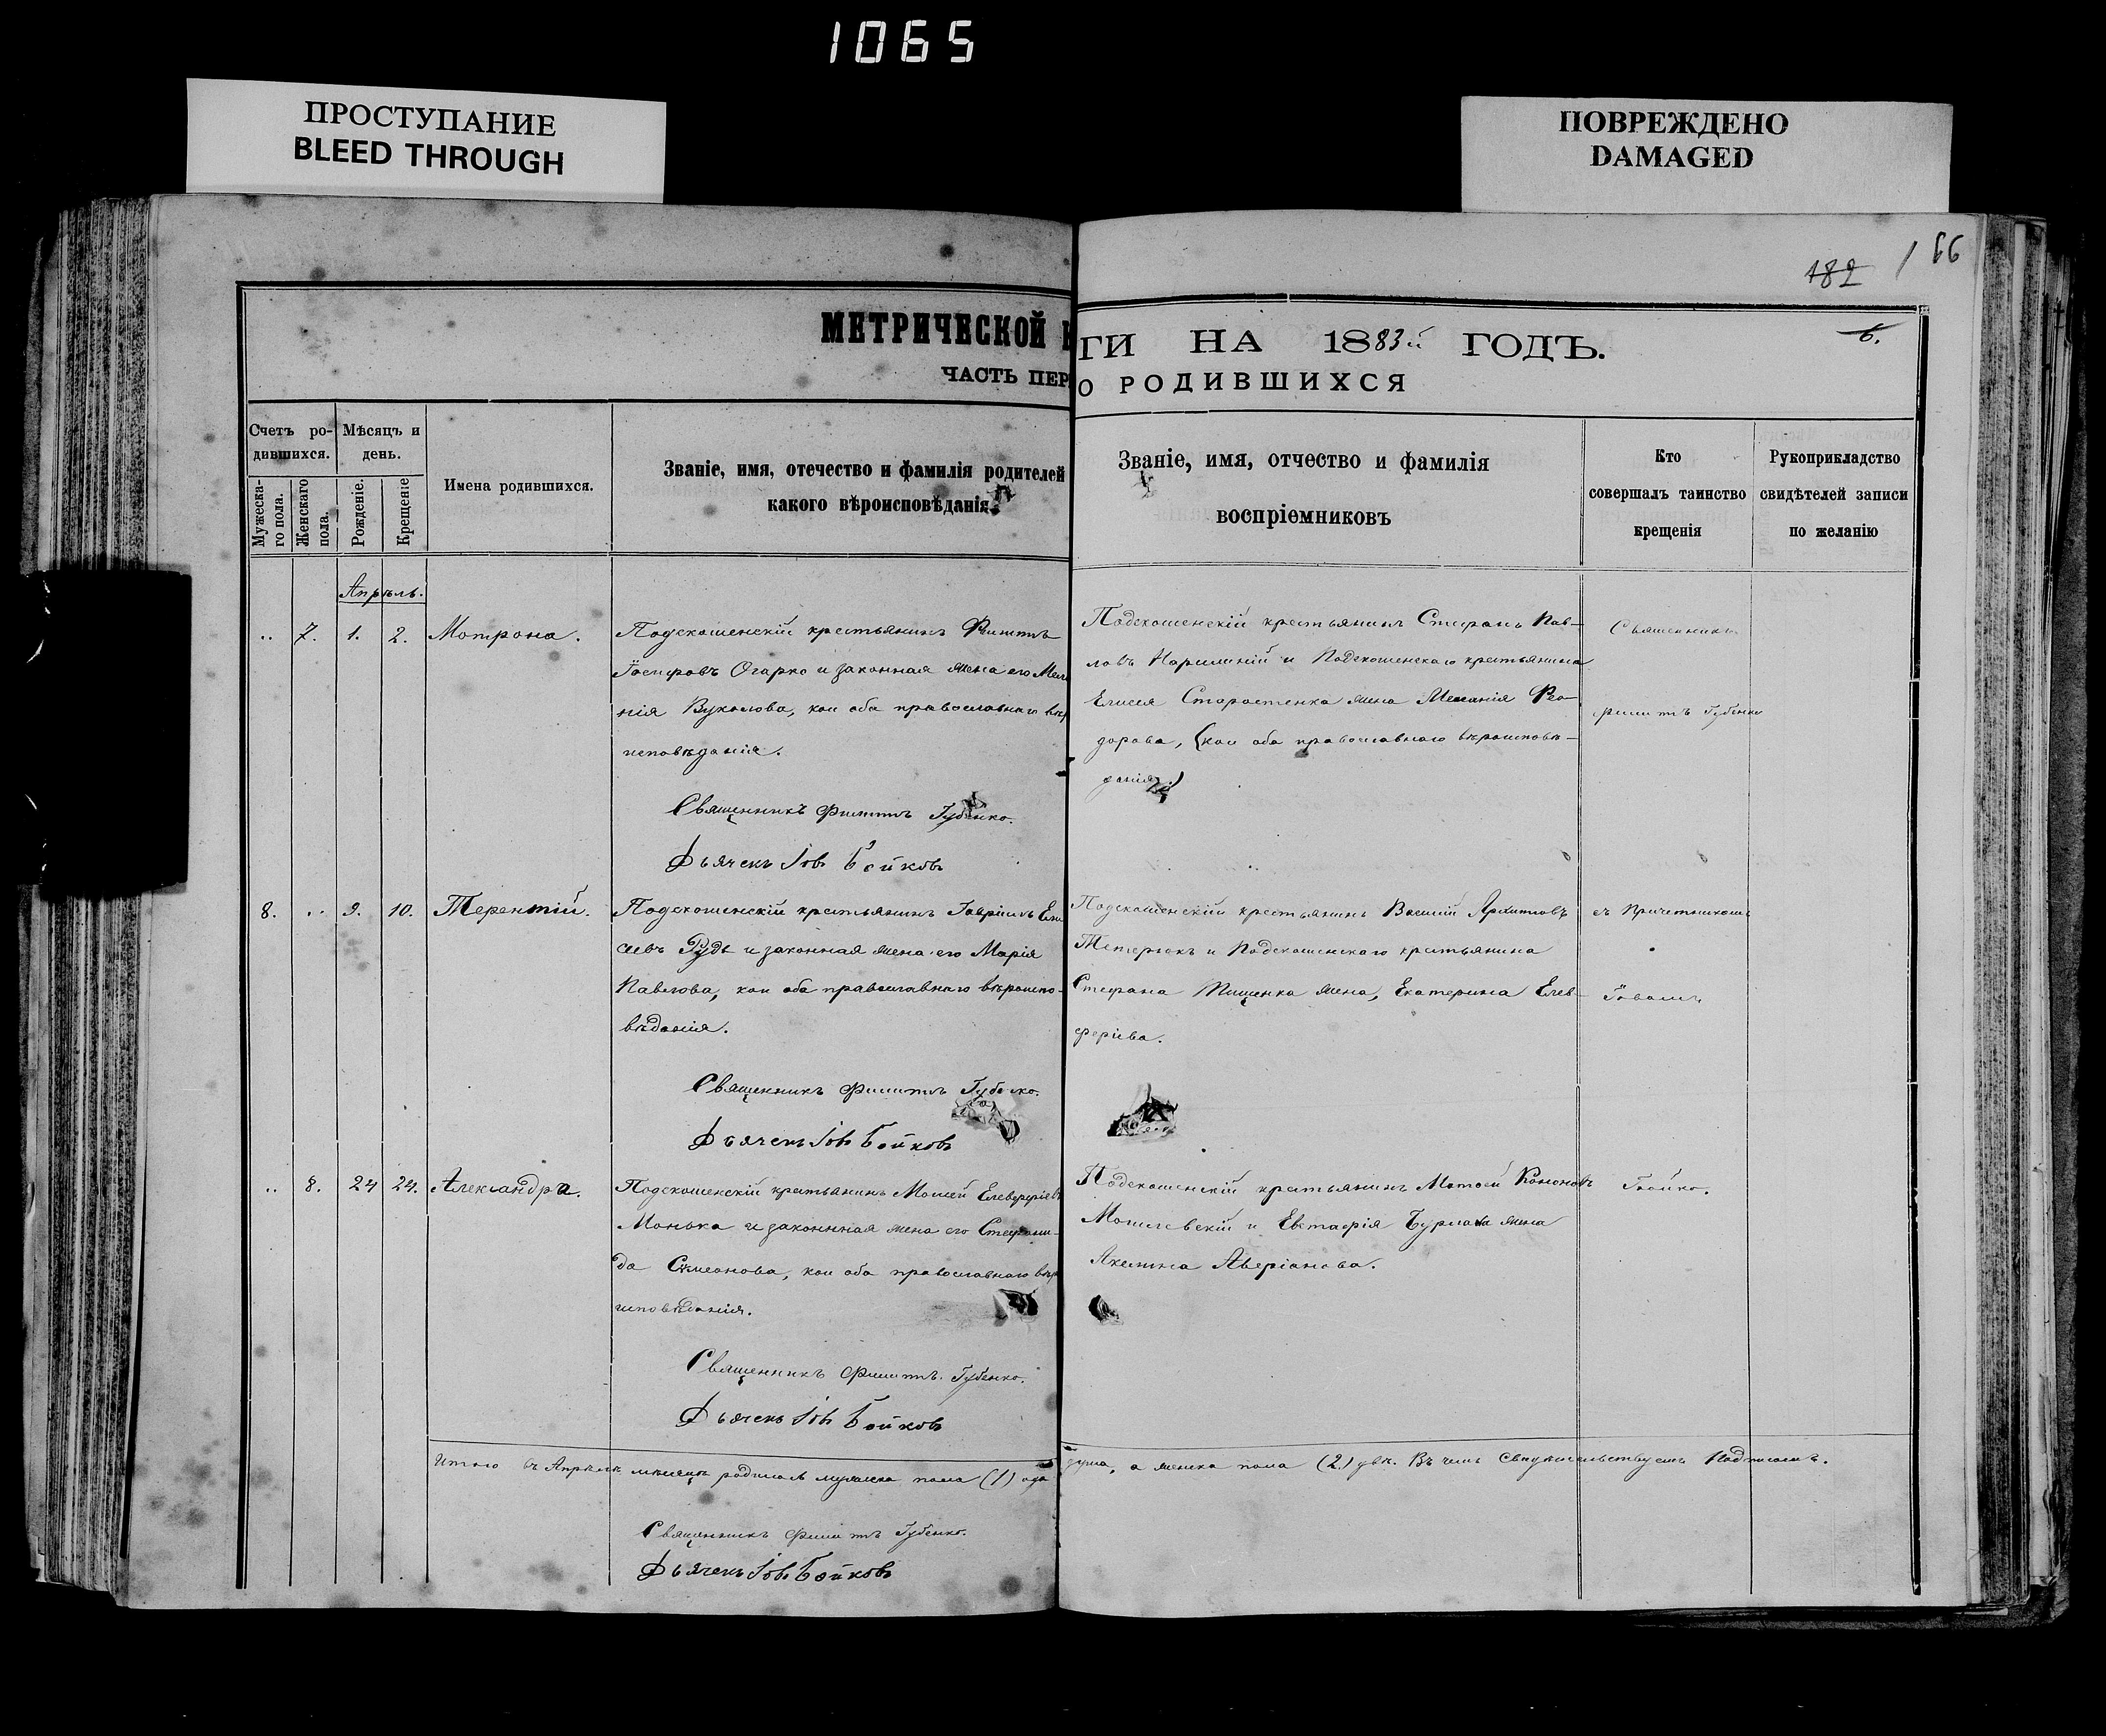 1065
ПРОСТУПАНИЕ
BLEED THROUGH
ПОВРЕЖДЕНО
DAMAGED
182
166
МЕТРИЧЕСКОЙ К
ЧАСТЬ ПЕР
ГИ НА 1883й ГОДЪ.
О РОДИВШИХСЯ
6.
Счетъ ро-
дившихся.
Мѣсяцъ и
день.
Мужеска-
го пола.
Женскаго
пола.
Рожденіе.
Крещеніе
Имена родившихся.
Званіе, имя, отечество и фамилія родителей
какого вѣроисповѣданія.
Званіе, имя, отчество и фамилія
воспріемниковъ
Кто
совершалъ таинство
крещенія
Рукоприкладство
свидѣтелей записи
по желанію
Апрѣль.
.. 7. 1. 2. Мотрона.
Подскошенскій крестьянинъ Филиппъ
Іосифовъ Огарко и законная жена его Мела
нія Вуколова, кои оба православнаго вѣр
исповѣданія.
Священникъ Филиппъ Губенко.
Дьячекъ Іовъ Бойковъ
Подскошенскій крестьянинъ Стефанъ Пав-
ловъ и Подскошенскаго крестьянина
Елисея Старостенка жена Меланія Фео-
дорова, (кои оба православнаго вѣроисповѣ-
данія.)
Священникъ
Филиппъ Губенко
8. .. 9. 10. Терентій.
Подскошенскій крестьянинъ Гавріилъ Ели
сеевъ Рудь и законная жена его Марія
Павлова, кои оба православнаго вѣроиспо-
вѣданія.
Священникъ Филиппъ Губенко.
Дьячекъ Іовъ Бойковъ
Подскошенскій крестьянинъ Василій Архиповъ
Тетерюкъ и Подскошенскаго крестьянина
Стефана Тищенка жена, Екатерина Елев-
феріева.
съ Причетникомъ
Іовомъ
.. 8. 24 24. Александра.
Подскошенскій крестьянинъ Моисей Елевферіевъ
Монька и законнная жена его Стефани-
да Симеонова, кои оба православнаго вѣр
исповѣданія.
Священникъ Филиппъ Губенко.
Дьячекъ Іовъ Бойковъ
Подскошенскій крестьянинъ Матѳей Кононовъ
Могилевскій и Евстафія Бурлака жена
Акелина Аверіанова.
Бойко.
Итого въ Апрѣлѣ мѣсяцѣ родилось мужеска пола (1) одна
душа, а женска пола (2.) двѣ. Въ чемъ свидѣтельствуемъ Подписомъ.
Священникъ Филиппъ Губенко.
Дьячекъ Іовъ Бойковъ